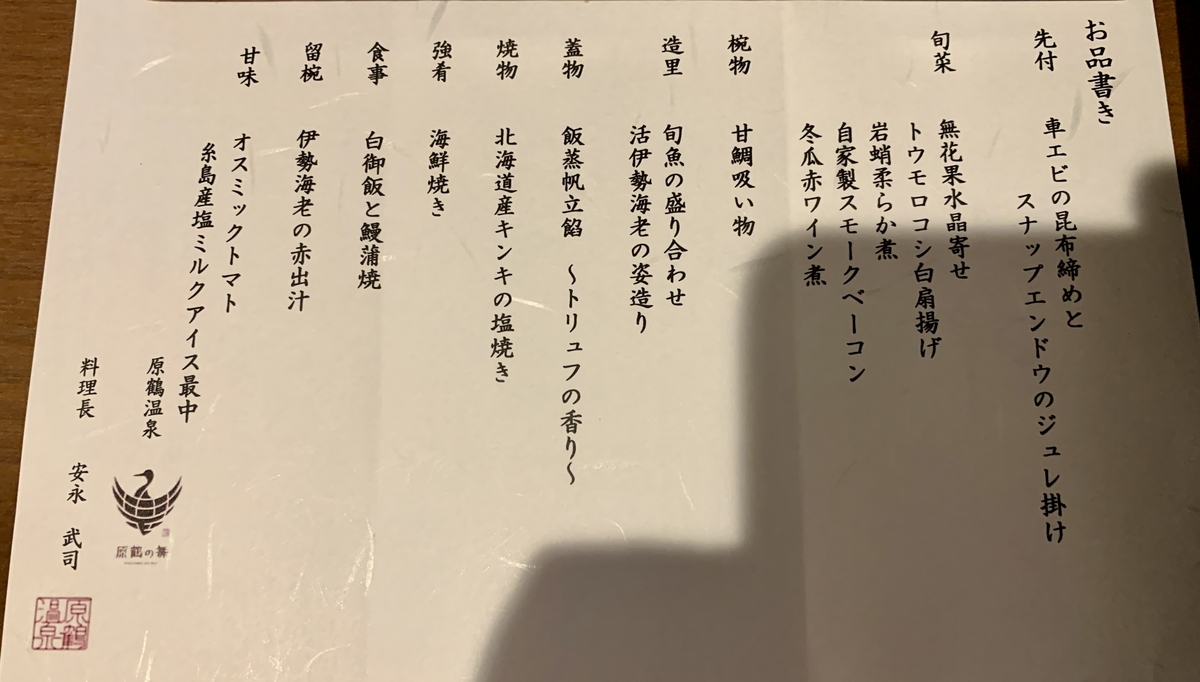 お品書き
先付
車エビの昆布締めと
スナップエンドウのジュレ掛け
旬菜
無花果水晶寄せ
トウモロコシ白扇揚げ
岩蛸柔らか煮
自家製スモークベーコン
冬瓜赤ワイン煮
椀物
甘鯛吸い物
造里
旬魚の盛り合わせ
活伊勢海老の姿造り
蓋物
飯蒸帆立餡 〜トリュフの香り〜
焼物
北海道産キンキの塩焼き
強肴
海鮮焼き
食事
白御飯と鰻蒲焼
留椀
伊勢海老の赤出汁
甘味
オスミックトマト
糸島産塩ミルクアイス最中
原鶴温泉
原鶴の舞
料理長 安永 武司
原鶴
温泉